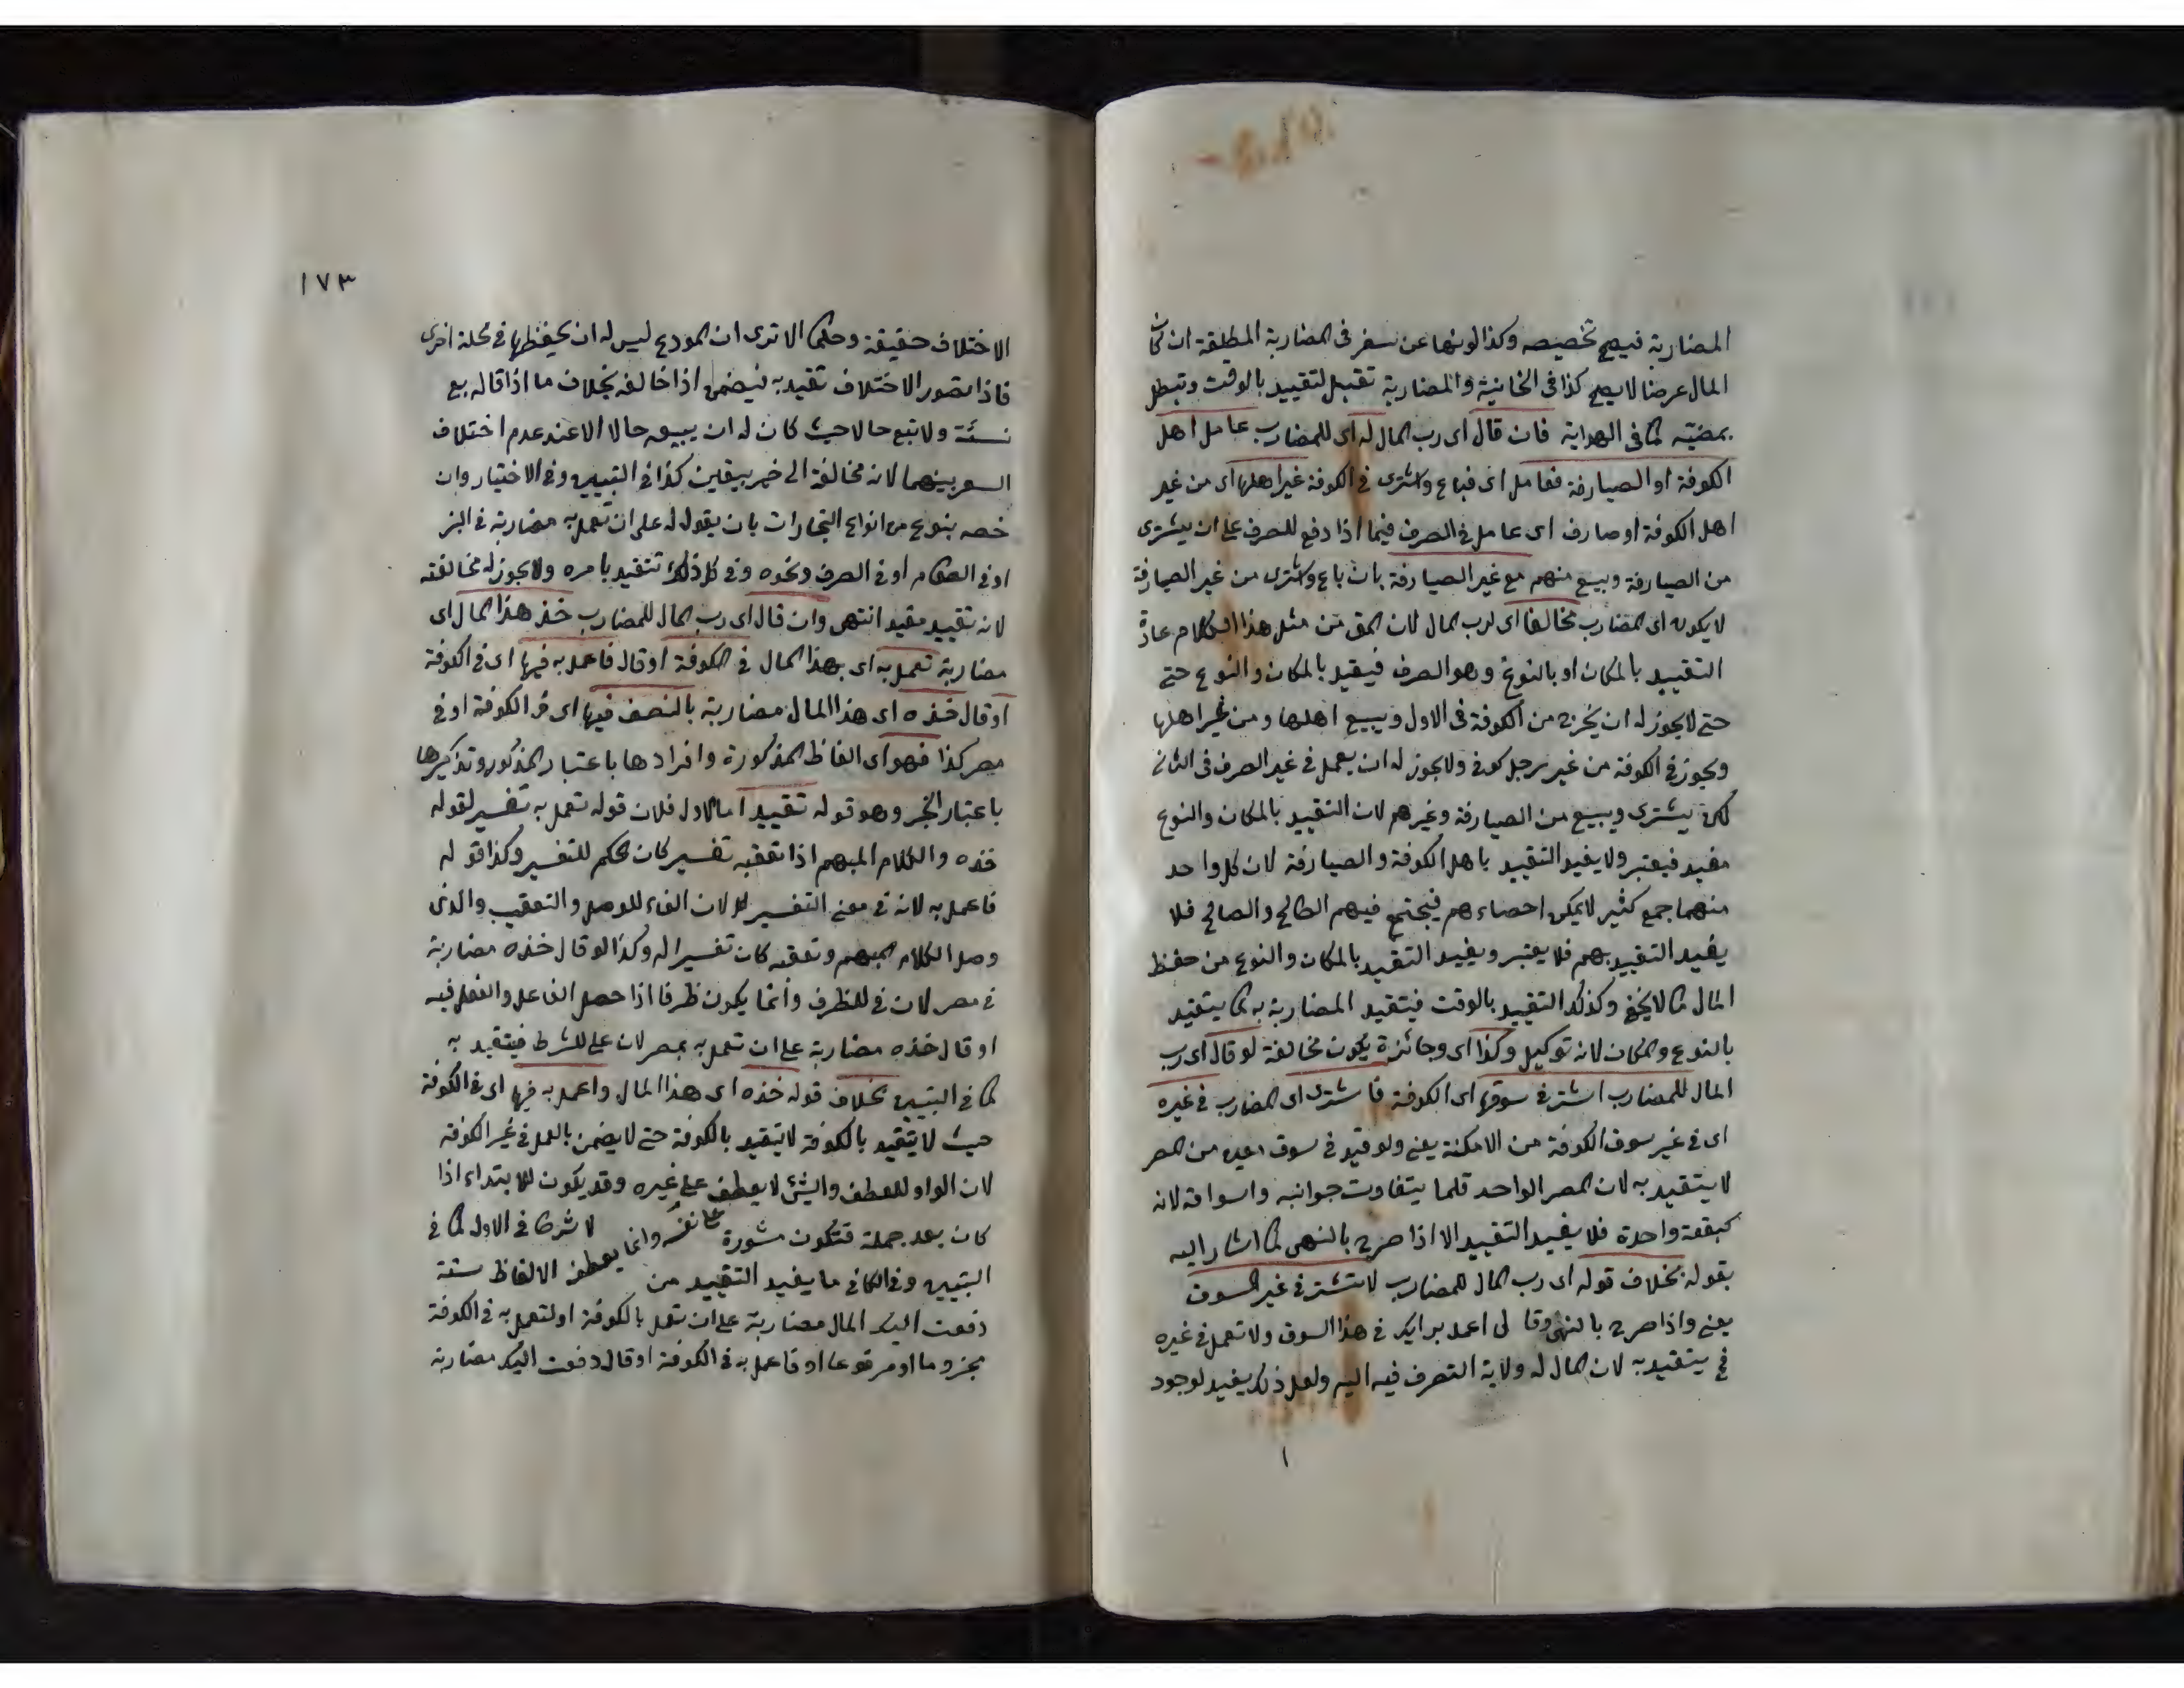 المضاربة فيصح تخصيصه وكذا لو نهاه عن سفر فى المضاربة المطلقة ان كان
المال عرضا لا يصح كذا فى الخانية والمضاربة تقبل لتقييد بالوقت وتبطل
بمضيّه كما فى الهداية فان قال اى رب المال له اى للمضارب عامل اهل
الكوفة او الصيارفة فعامل اى فباع واشترى فى الكوفة غير اهلها اى من غير
اهل الكوفة او صارف اى عامل فى الصرف فيما اذا دفع للصرف على ان يشترى
من الصيارفة ويبيع منهم مع غير الصيارفة بان باع واشترى من غير الصيارفة
لا يكون اى المضارب مخالفا اى لرب المال لان المق من مثل هذا الكلام عادة
التقييد بالمكان او بالنوع وهو الصرف فيقيد بالمكان والنوع حتى
حتى لا يجوز له ان يخرج من الكوفة فى الاول ويبيع اهلها ومن غير اهلها
ويجوز فى الكوفة من غير رجل كوفى ولا يجوز له ان يعمل فى غير الصرف فى الثانى
لكن يشترى ويبيع من الصيارفة وغيرهم لان التقييد بالمكان والنوع
مفيد فيعتبر ولا يفيد التقييد باهل الكوفة والصيارفة لان كل واحد
منهما جمع كثير لا يمكن احصاءهم فيجتمع فيهم الطالح والصالح فلا
يفيد التقييد بهم فلا يعتبر ويفيد التقيد بالمكان والنوع من حفظ
المال كما لا يخفى وكذلك التقييد بالوقت فيتقيد المضاربة به كما يتقيد
بالنوع والمكان لانه توكيل وكذا اى وجائزة يكون مخالفة لو قال اى رب
المال للمضارب اشتر فى سوقها اى الكوفة فاشترى اى المضارب فى غيره
اى فى غير سوق الكوفة من الامكنة يعنى ولو قيد فى سوق بعينه من المصر
لا يتقيد به لان المصر الواحد قلما يتفاوت جوانبه واسواقه لانه
كبقعة واحدة فلا يفيد التقييد الا اذا صرح بالنهى كما اشار اليه
بقوله بخلاف قوله اى رب المال للمضارب لا تشتر فى غير السوق
يعنى واذا صرح بالنهى وقال لى اعمل برايك فى هذا السوق ولا تعمل فى غيره
فح يتقيد به لان المال له ولاية التصرف فيه اليه ولعل ذلك يفيد لوجود
١
١٧٣
الاختلاف حقيقة وحكما الا ترى ان المودع ليس له ان يحفظها فى محلة اخرى
فاذا تصور الاختلاف تقيد به فيضمن اذا خالفه بخلاف ما اذا قال بع
نسئة ولا تبع حالا حيث كان له ان يبيعه حالا الا عند عدم اختلاف
السعر بينهما لانه مخالفة الى خير بيقين كذا فى التبيين وفى الاختيار وان
خصه بنوع من انواع التجارات بان يقول له على ان تعمل به مضاربة فى البز
او فى الطعام او فى الصرف ونحوه وفى كل ذلك تتقيد بامره ولا يجوز له مخالفته
لانه تقييد مقيد انتهى وان قال اى رب المال للمضارب خذ هذا المال اى
مضاربة تعمل به اى بهذا المال فى الكوفة او قال فاعمل به فيها اى فى الكوفة
او قال خذه اى هذا المال مضاربة بالنصف فيها اى فى الكوفة او فى
مصر كذا فهو اى الفاظ المذكورة وافرادها باعتبار المذكور وتذكيرها
باعتبار الخبر وهو قوله تقييد اما الاول فلان قوله تعمل به تفسير لقوله
خذه والكلام المبهم اذا تعقبه تفسير كان الحكم للتفسير وكذا قوله
فاعمل به لانه فى معنى التفسير له لان الفاء للوصل والتعقيب والذى
وصل الكلام المبهم وتعقبه كان تفسيرا له وكذا لو قال خذه مضاربة
فى مصر لان فى للظرف وانما يكون ظرفا اذا حصل الفاعل والفعل فيه
او قال خذه مضاربة على ان تعمل به بمصر لان على للشرط فيتقيد به
كما فى التبيين بخلاف قوله خذه اى هذا المال واعمل به فيها اى فى الكوفة
حيث لا يتقيد بالكوفة لا يتقيد بالكوفة حتى لا يضمن بالعمل فى غير الكوفة
لان الواو للعطف والشئ لا يعطف على غيره وقد يكون للابتداء اذا
كان بعد جملة فتكون مشورة وانما يعطف لا شرطا فى الاول كما فى
التبيين وفى الكافى ما يفيد التقييد من الالفاظ ستة
دفعت اليك المال مضاربة على ان تعمل بالكوفة او لتعمل به فى الكوفة
مجزوما او مرفوعا او فاعمل به فى الكوفة او قال دفعت اليك مضاربة